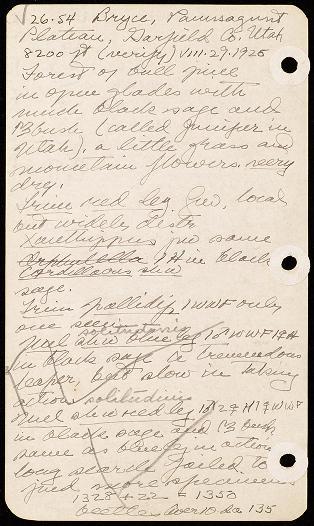 26.54 Bryce, Paunsagunt
Plateau, Garfield Co. Utah
8200 ft (verify) VIII.29.1925
Forest of bull pine
in open glades with
much black sage and
B bush (called Juniper in
Utah), a little grass and
mountain flowers. very
dry.
Trim red leg few, local
but widely distr
Xanthippus juv same
1 H in black
Cordillacris
sage.
Trim pallidip, 1 W♂ only
one seen
solitudinis
Mel blue leg 10 W F
in black sage a tremendous
leaper, but slow in taking
action solitudinis
Mel red leg
in black sage and B bush
same as blueleg in action
long search failed to
find more specimens
1328 + 22 = 1350
beetles over 10 do 135